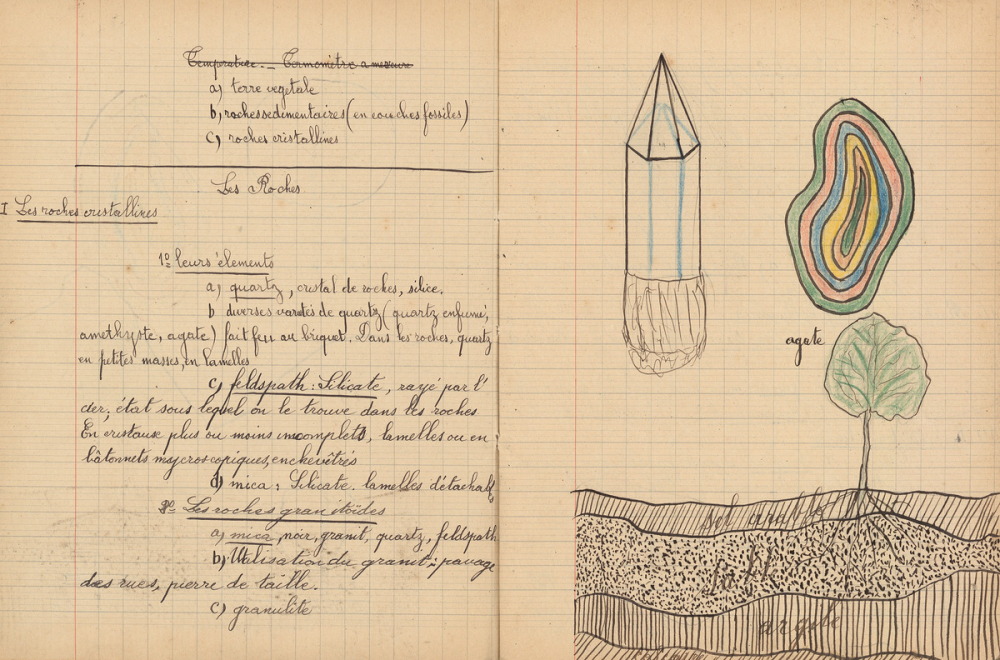 Temperatice. _ Termometre a mercure
a) terre vegetale
b) roches sedimentaires (en couches fossiles)
c) roches cristallines
Les Roches
I Les roches cristallines
1º leurs élements
a) quartz, cristal de roches, silice.
b diverses varietés de quartz (quartz enfumé,
amethyste, agate) fait feu au briquet. Dans les roches, quartz
en petites masses, en lamelles
c) feldspath : Silicate, rayé par l'
cier; état sous lequel on le trouve dans les roches
En cristaux plus ou moins incomplets, lamelles ou en
bâtonnets mycroscopiques, enchevêtrés
d) mica : Silicate. lamelles détachabl
2º Les roches granitoïdes
a) mica noir, granit, quartz, feldspath
b) Utilisation du granit : pavage
des rues, pierre de taille.
c) granulite
agate
sol arable
argile